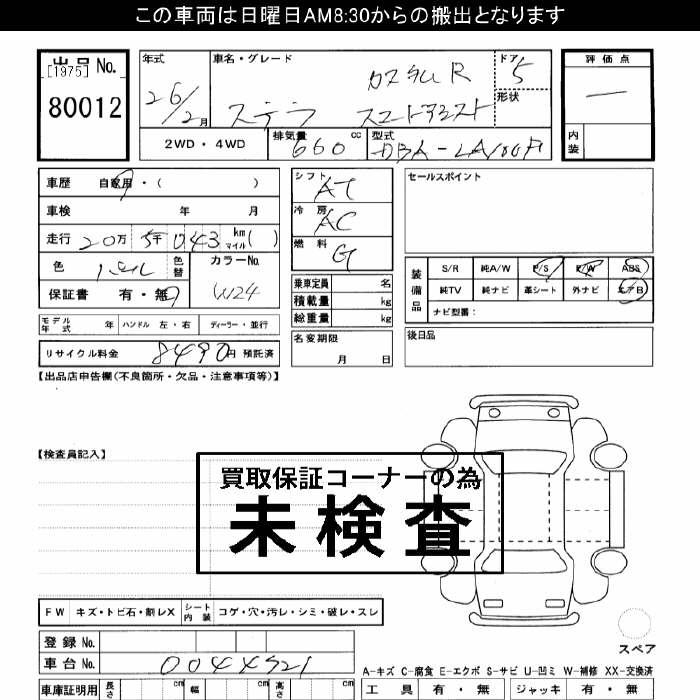 この車両は日曜日AM8:30からの搬出となります
出品No.
[1975]
80012
年式 26/2月
車名・グレード カスタムR
ステラ スマートアシスト
ドア 5
形状
評価点
内装
2WD・4WD 排気量 660cc 型式 DBA-LA100F
車歴 自家用・( )
車検 年 月
走行 20万5千043km マイル( )
色 パール 色替 カラーNo. W24
保証書 有・無
シフト AT
冷房 AC
燃料 G
セールスポイント
装備品 S/R 純A/W P/S P/W ABS
純TV 純ナビ 革シート 外ナビ エアB
ナビ型番:
乗車定員 名
積載量 kg
総重量 kg
モデル年式 年 ハンドル 左・右 ディーラー・並行
名変期限 月 日
後日品
リサイクル料金 8490円 預託済
【出品店申告欄(不良箇所・欠品・注意事項等)】
【検査員記入】
買取保証コーナーの為
未検査
FW キズ・トビ石・割レX シート内装 コゲ・穴・汚レ・シミ・破レ・スレ
スペア
登録No.
車台No. 0044521
A-キズ C-腐食 E-エクボ S-サビ U-凹ミ W-補修 XX-交換済
車庫証明用 長さ cm 幅 cm 高さ cm 工具 有・無 ジャッキ 有・無